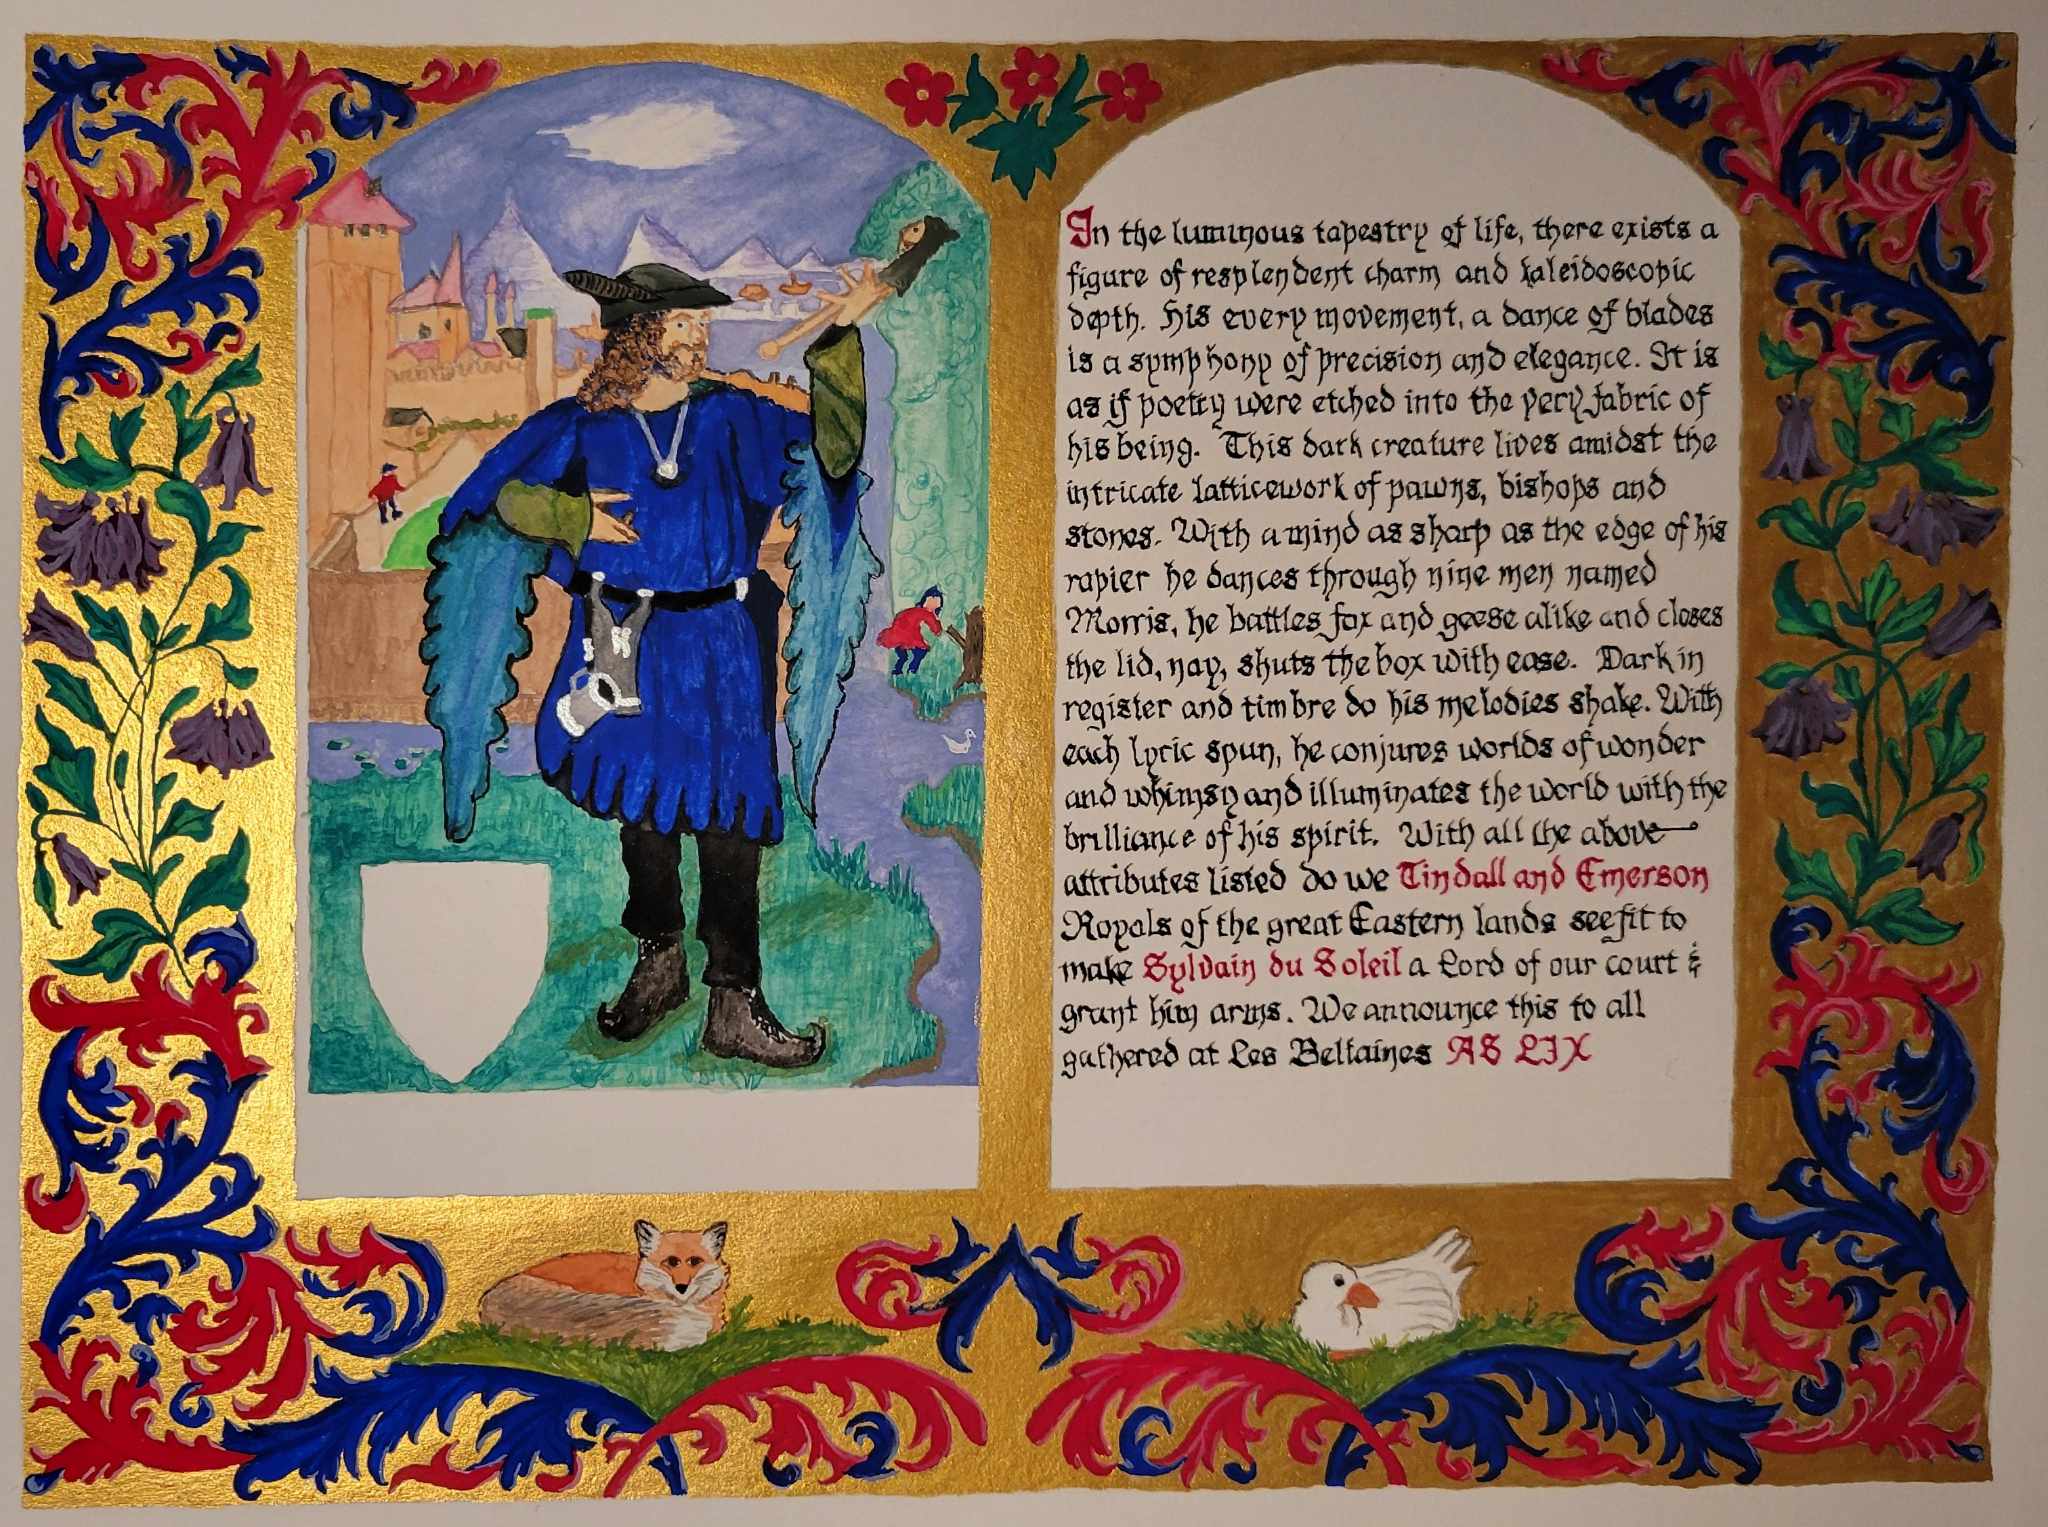 In the luminous tapestry of life, there exists a
figure of resplendent charm and kaleidoscopic
depth. His every movement, a dance of blades
is a symphony of precision and elegance. It is
as if poetry were etched into the very fabric of
his being. This dark creature lives amidst the
intricate latticework of pawns, bishops and
stones. With a mind as sharp as the edge of his
rapier he dances through nine men named
Morris, he battles fox and geese alike and closes
the lid, nay, shuts the box with ease. Dark in
register and timbre do his melodies shake. With
each lyric spun, he conjures worlds of wonder
and whimsy and illuminates the world with the
brilliance of his spirit. With all the above
attributes listed do we Tindall and Emerson
Royals of the great Eastern lands see fit to
make Sylvain du Soleil a Lord of our court &
grant him arms. We announce this to all
gathered at Les Beltaines AS LIX